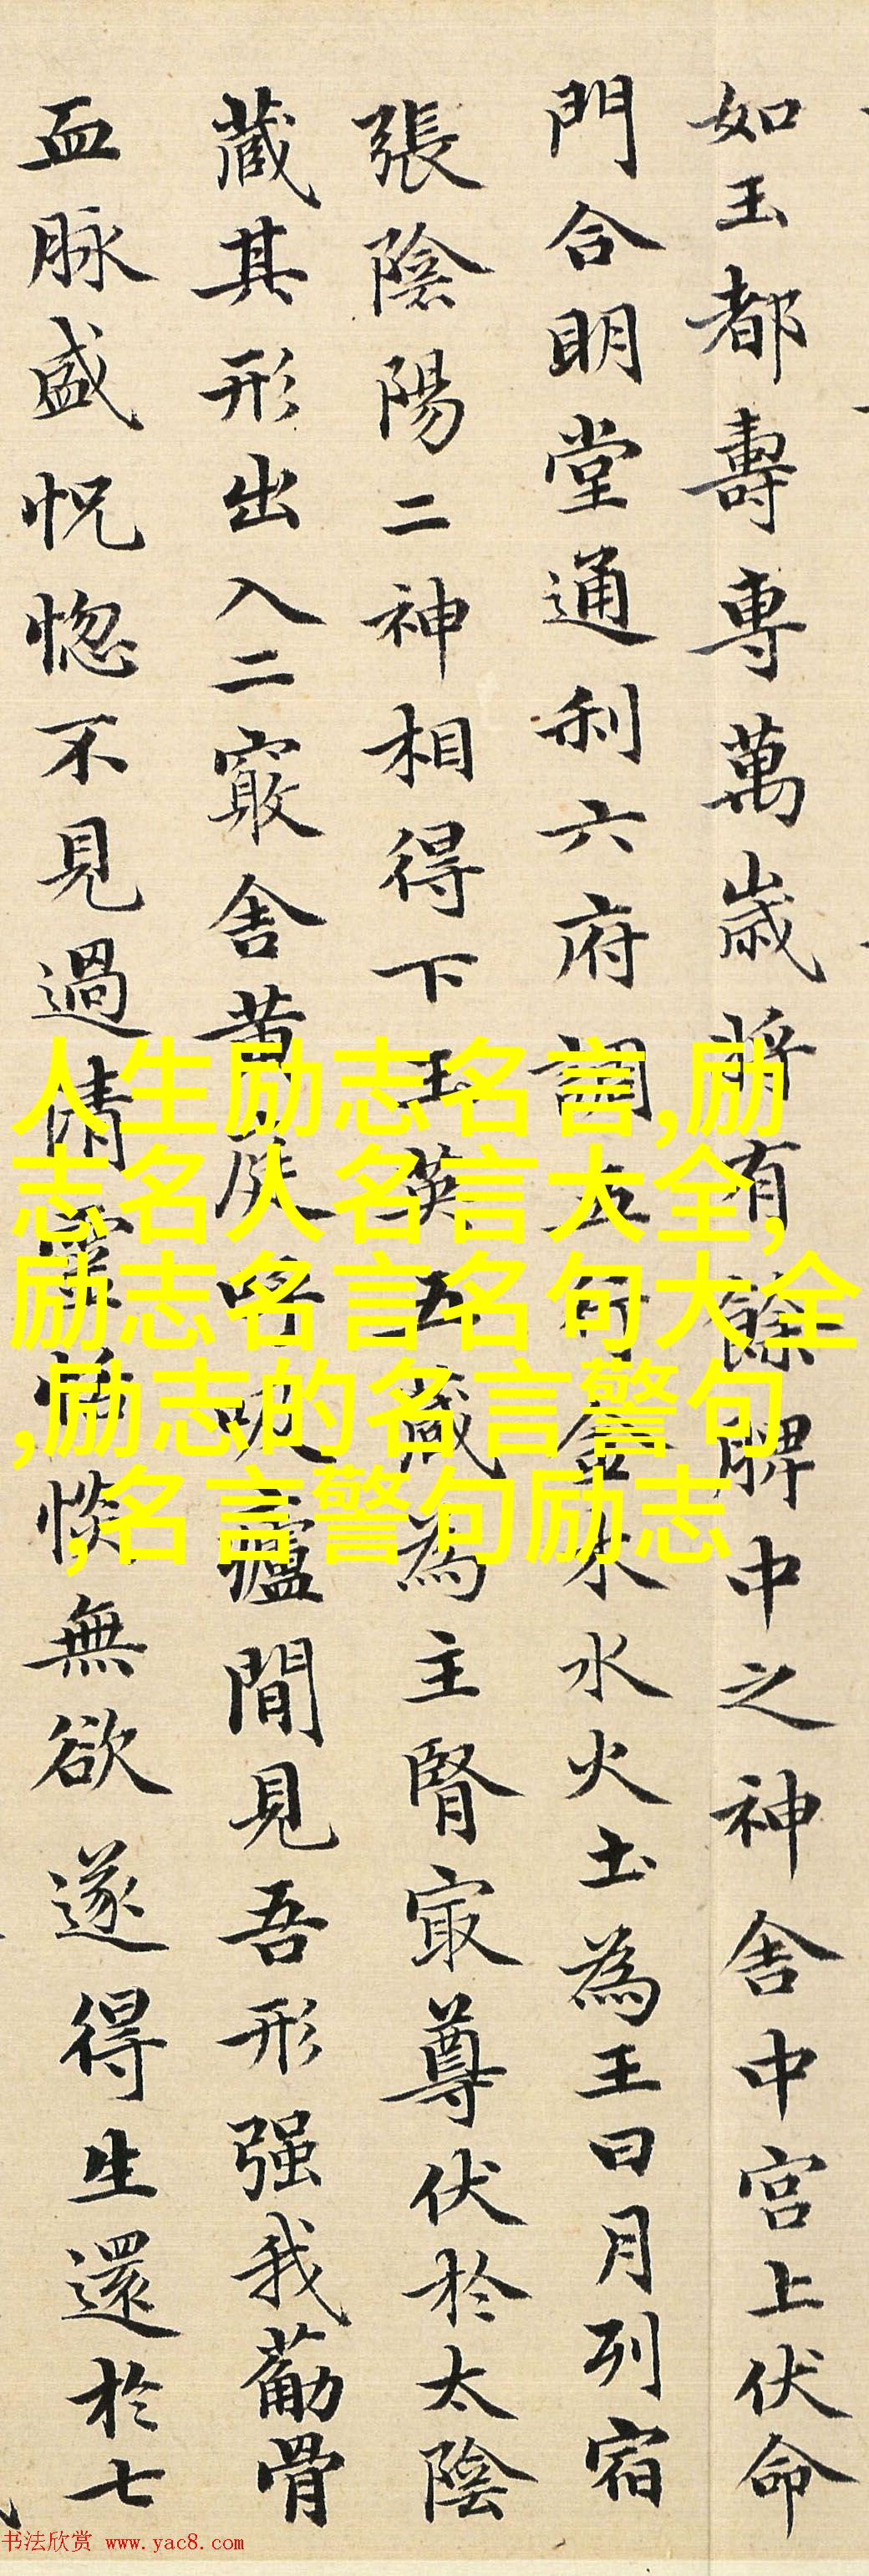 如玉都壽專萬歲將有餘脾中之神舍中宮上伏命
門合明堂通利六府調五行金木水火土為王日月列宿
張陰陽二神相得下玉英五藏為主腎㝡尊伏於太陰
藏其形出入二竅舍黃庭呼吸廬間見吾形强我葋骨
血脉盛怳惚不見過清靈恬惔無欲遂得生還於七
人生励志名言,励
志名人名言大全,
励志名言名句大全
,励志的名言警句
,名言警句励志
书法欣赏 www.yac8.com